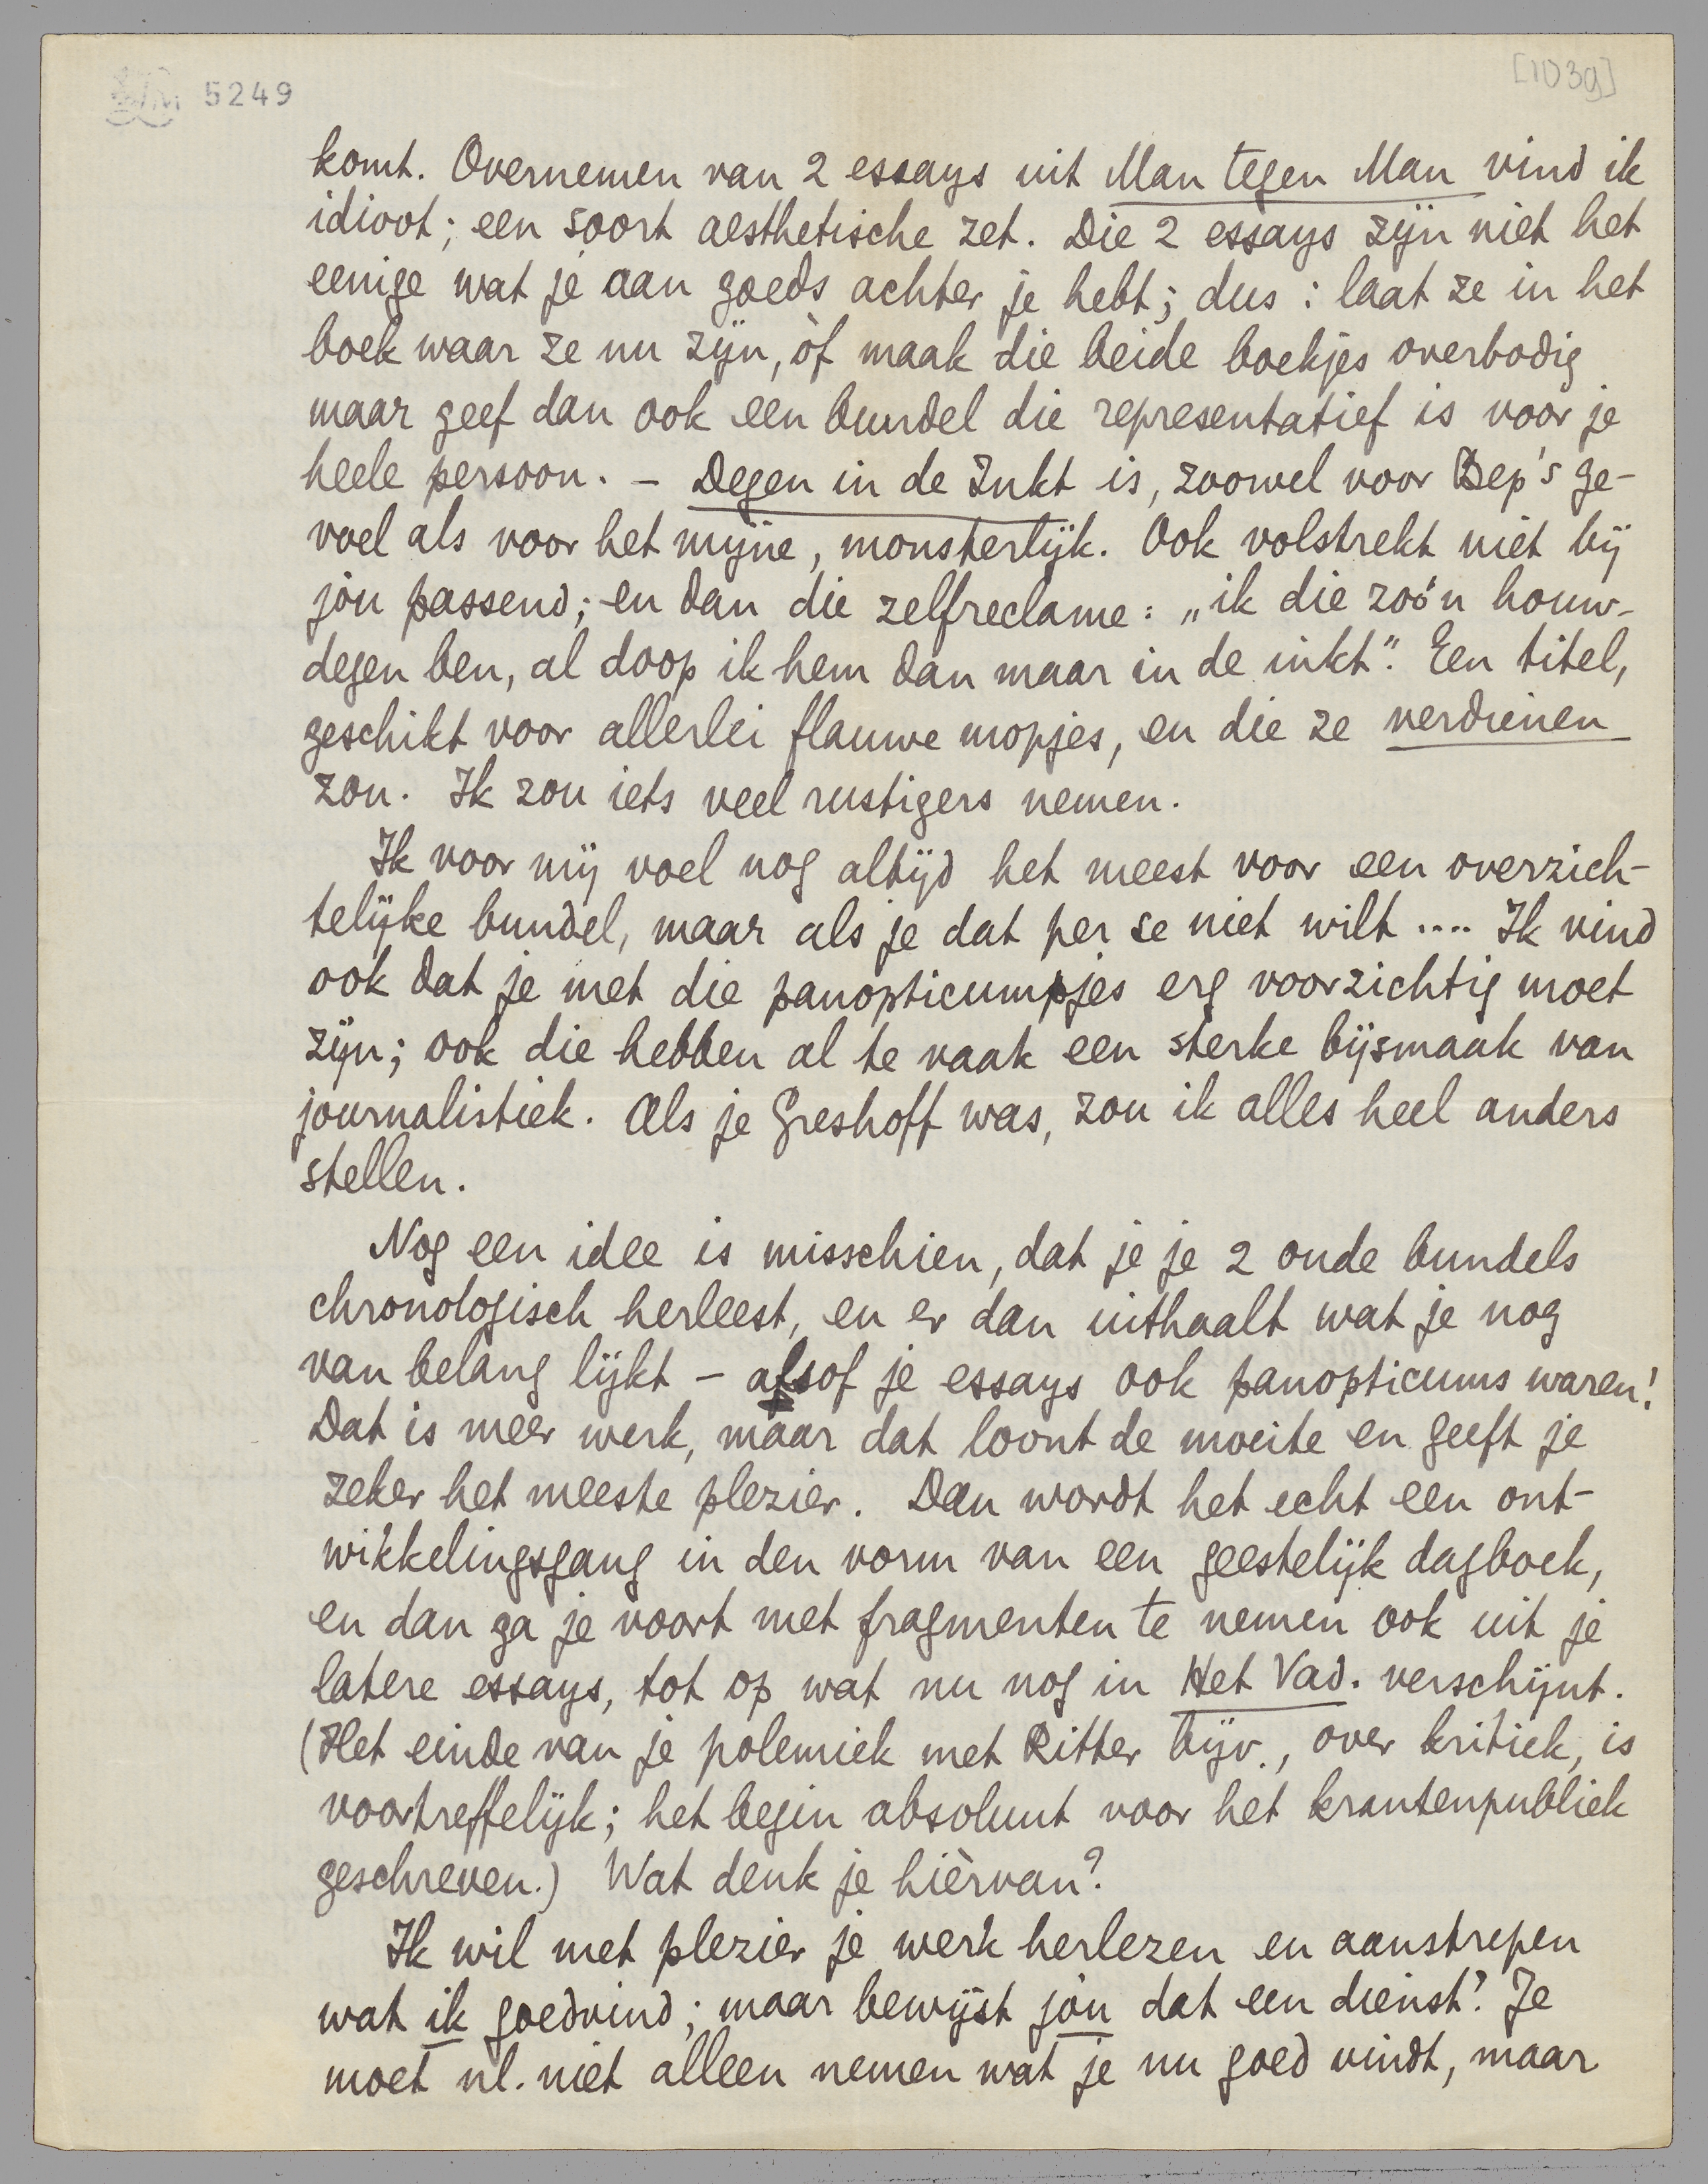 5249
[1039]
komt. Overnemen van 2 essays uit Man tegen Man vind ik
idioot; een soort aesthetische zet. Die 2 essays zijn niet het
eenige wat je aan goeds achter je hebt; dus: laat ze in het
boek waar ze nu zijn, òf maak die beide boekjes overbodig
maar geef dan ook een bundel die representatief is voor je
heele persoon. – Degen in de Inkt is, zoowel voor Bep's ge-
voel als voor het mijne, monsterlijk. Ook volstrekt niet bij
jòu passend; en dan die zelfreclame: „ik die zoo'n houw-
degen ben, al doop ik hem dan maar in de inkt". Een titel,
geschikt voor allerlei flauwe mopjes, en die ze verdienen
zou. Ik zou iets veel rustigers nemen.
Ik voor mij voel nog altijd het meest voor een overzich-
telijke bundel, maar als je dat per se niet wilt .... Ik vind
ook dat je met die panopticumpjes erg voorzichtig moet
zijn; ook die hebben al te vaak een sterke bijsmaak van
journalistiek. Als je Greshoff was, zou ik alles heel anders
stellen.
Nog een idee is misschien, dat je je 2 oude bundels
chronologisch herleest, en er dan uithaalt wat je nog
van belang lijkt – alsof je essays ook panopticums waren!
Dat is meer werk, maar dat loont de moeite en geeft je
zeker het meeste plezier. Dan wordt het echt een ont-
wikkelingsgang in den vorm van een geestelijk dagboek,
en dan ga je voort met fragmenten te nemen ook uit je
latere essays, tot op wat nu nog in Het Vad. verschijnt.
(Het einde van je polemiek met Ritter bijv., over kritiek, is
voortreffelijk; het begin absoluut voor het krantenpubliek
geschreven.) Wat denk je hièrvan?
Ik wil met plezier je werk herlezen en aanstrepen
wat ik goedvind; maar bewijst jòu dat een dienst? Je
moet nl. niet alleen nemen wat je nu goed vindt, maar